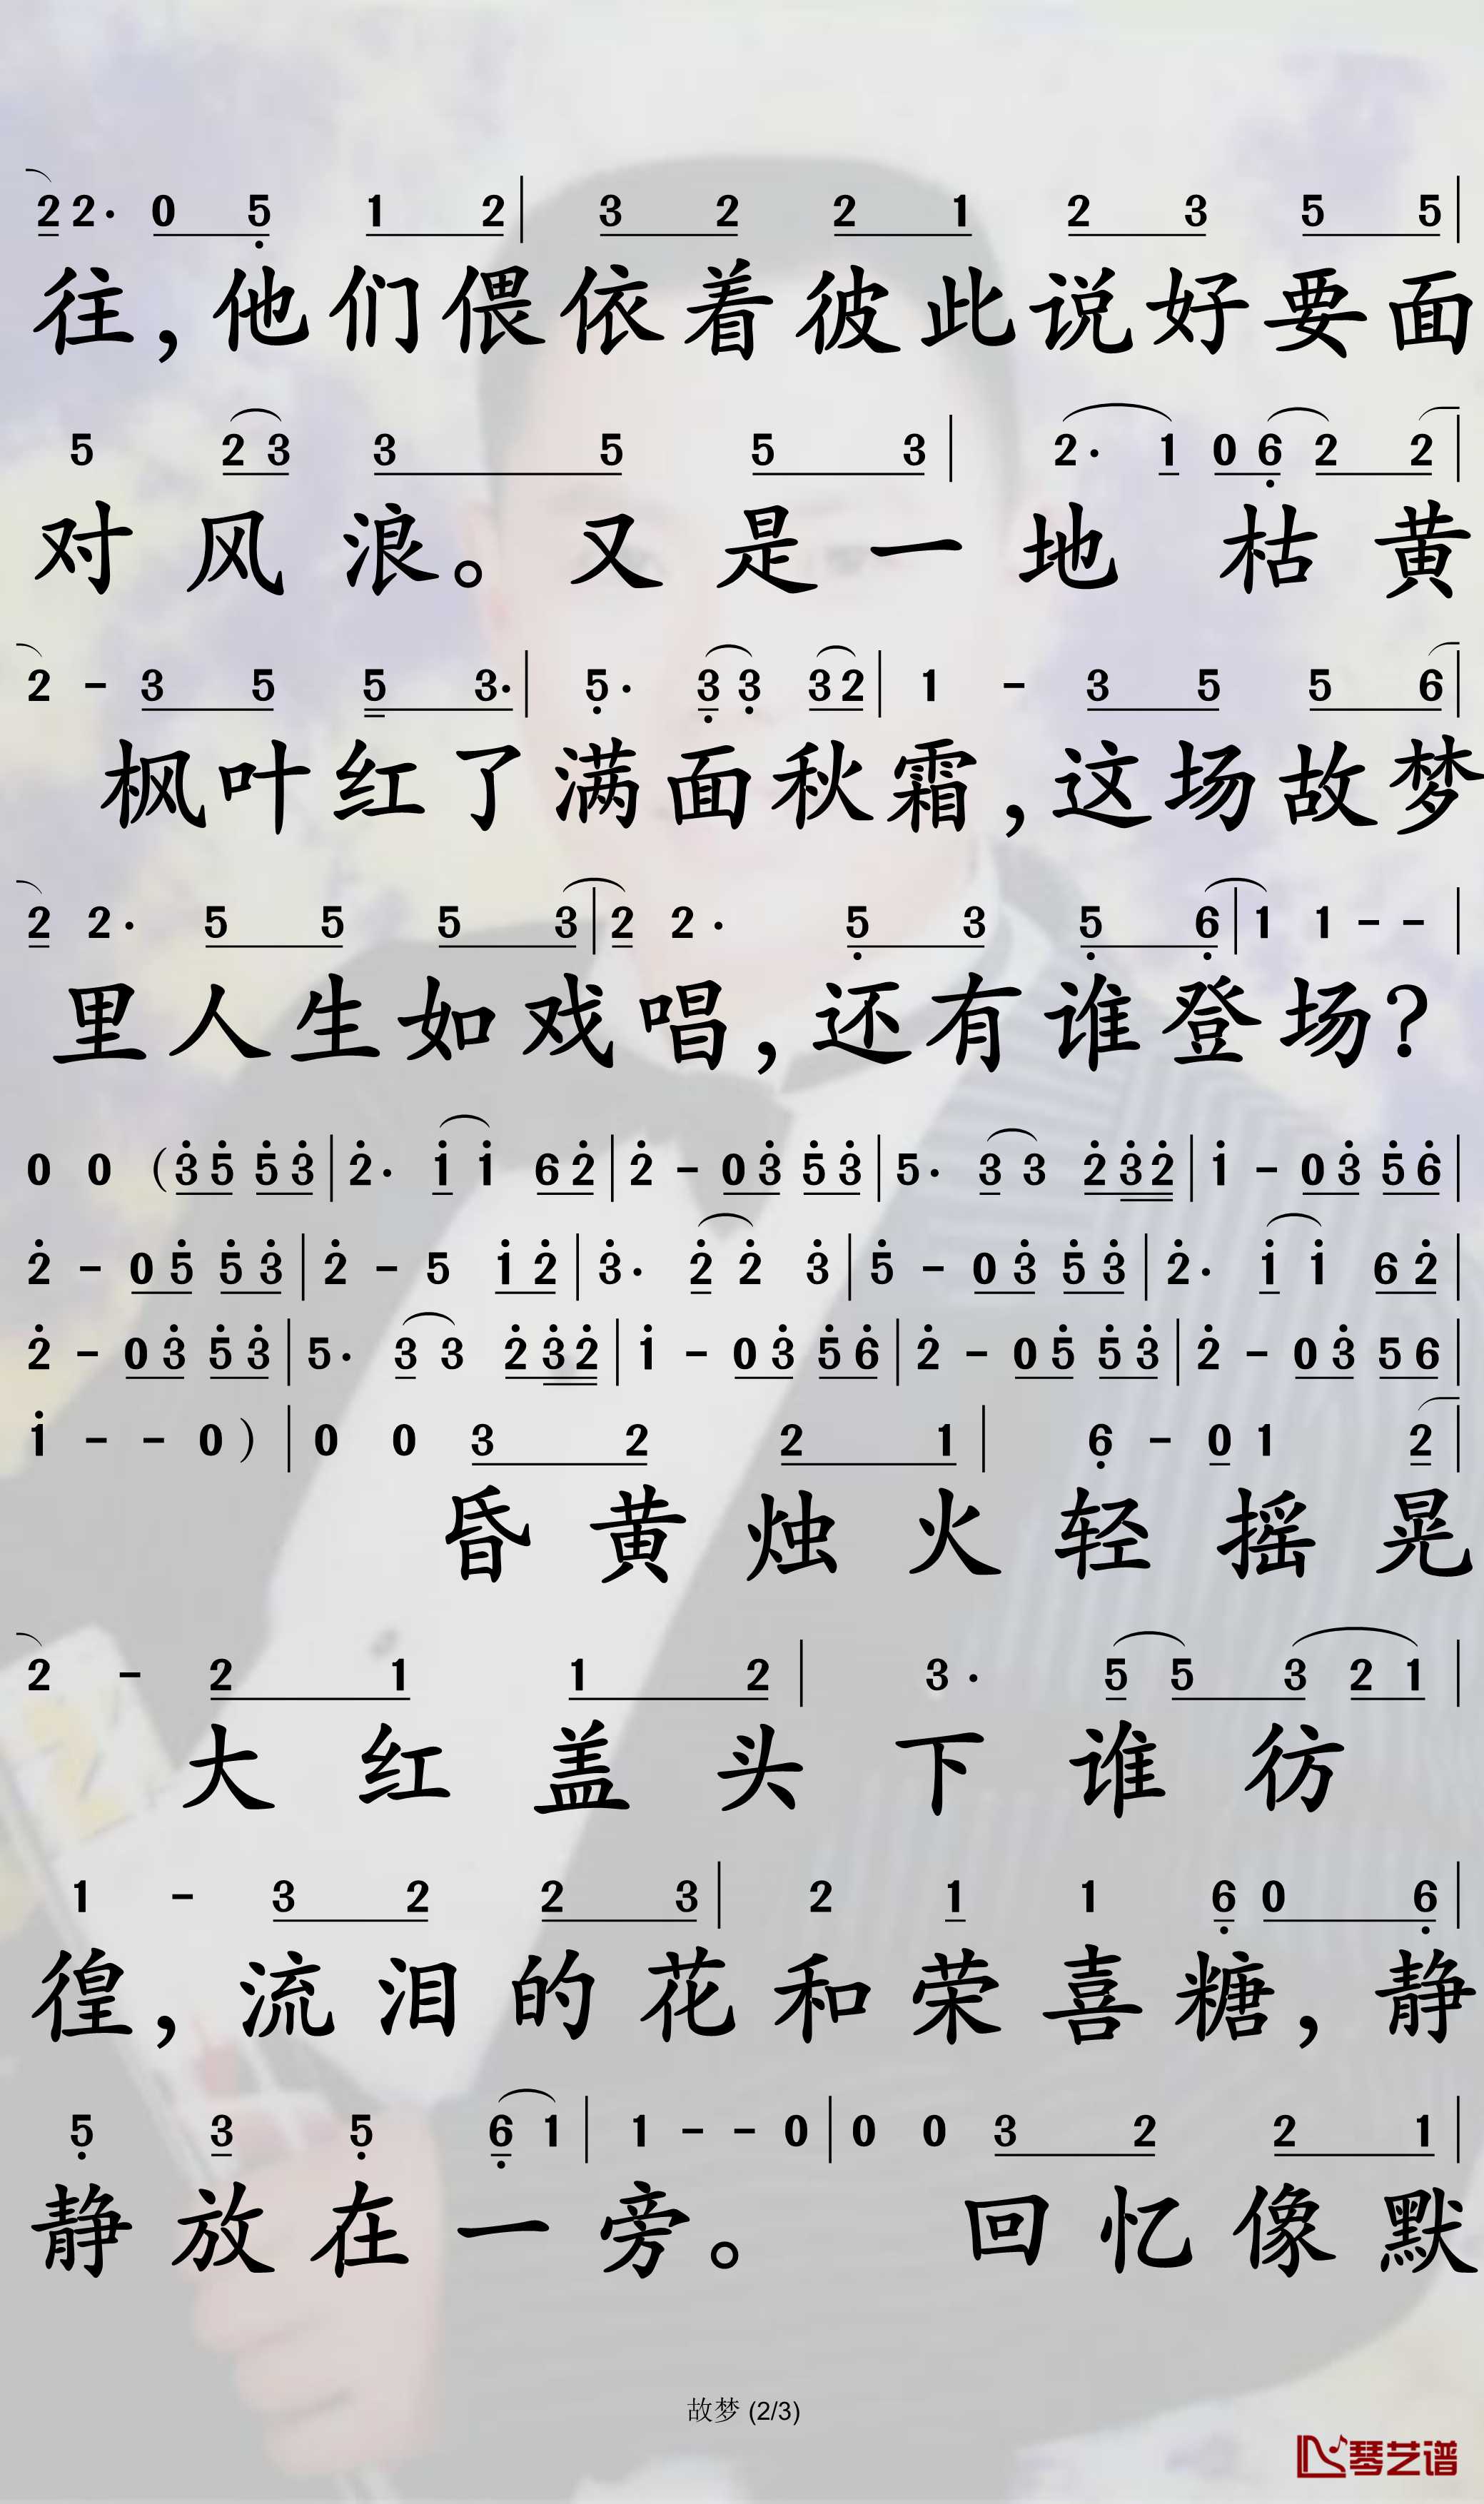 2 2· 0 5 1 2 | 3 2 2 1 2 3 5 5 |
往，他们偎依着彼此说好要面
5 2 3 3 5 5 3 | 2· 1 0 6 2 2 |
对风浪。又是一地枯黄
2 - 3 5 5 3· | 5· 3 3 3 2 | 1 - 3 5 5 6 |
枫叶红了满面秋霜，这场故梦
2 2· 5 5 5 3 | 2 2· 5 3 5 6 | 1 1 - - |
里人生如戏唱，还有谁登场？
0 0 (3 5 5 3 | 2· 1 1 6 2 | 2 - 0 3 5 3 | 5· 3 3 2 3 2 | 1 - 0 3 5 6 |
2 - 0 5 5 3 | 2 - 5 1 2 | 3· 2 2 3 | 5 - 0 3 5 3 | 2· 1 1 6 2 |
2 - 0 3 5 3 | 5· 3 3 2 3 2 | 1 - 0 3 5 6 | 2 - 0 5 5 3 | 2 - 0 3 5 6 |
1 - - 0 ) | 0 0 3 2 2 1 | 6 - 0 1 2 |
昏黄烛火轻摇晃
2 - 2 1 1 2 | 3· 5 5 3 2 1 |
大红盖头下谁彷
1 - 3 2 2 3 | 2 1 1 6 0 6 |
徨，流泪的花和荣喜糖，静
5 3 5 6 1 | 1 - - 0 | 0 0 3 2 2 1 |
静放在一旁。回忆像默
故梦 (2/3)
琴艺谱